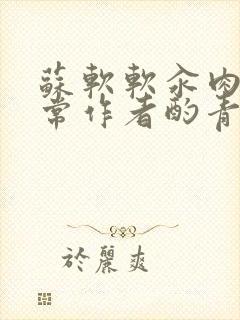 蘇軟軟汆肉
常作者酌青
於麗爽